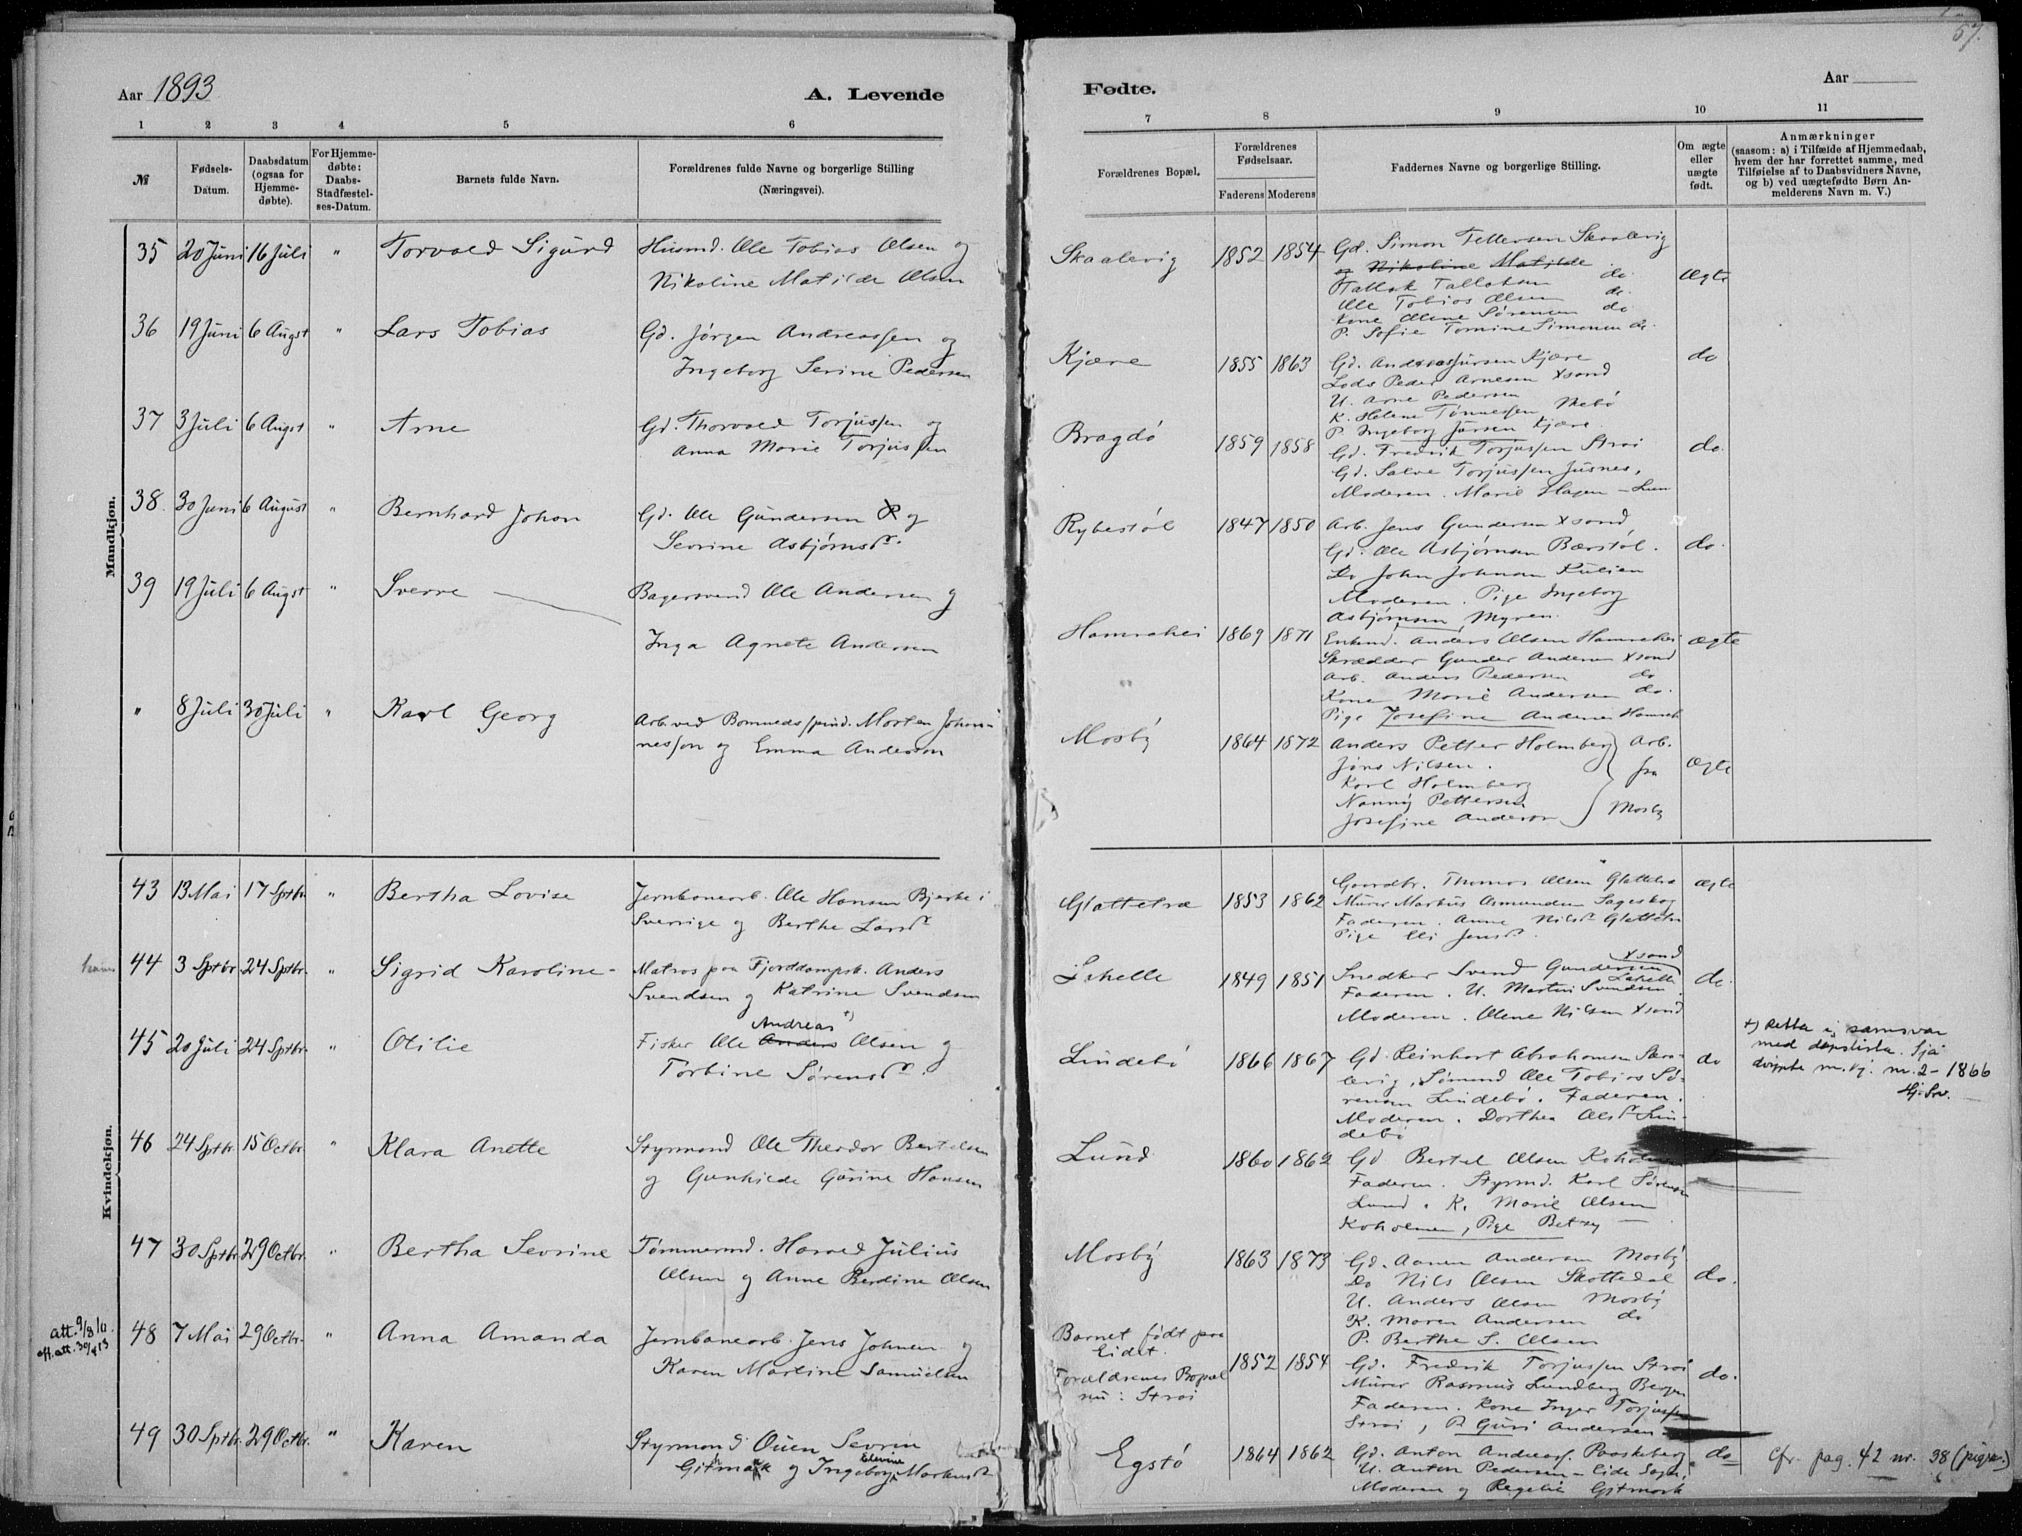 57.
Aar 1893
A. Levende
Fødte.
Aar
1 2 3 4 5 6
7 8 9 10 11
№
Fødsels-Datum.
Daabsdatum (ogsaa for Hjemme-døbte).
For Hjemme-døbte: Daabs-Stadfæstel-ses-Datum.
Barnets fulde Navn.
Forældrenes fulde Navne og borgerlige Stilling
(Næringsvei).
Forældrenes Bopæl.
Forældrenes Fødselsaar.
Faderens Moderens
Faddernes Navne og borgerlige Stilling.
Om ægte eller uægte født.
Anmærkninger
(saasom: a) i Tilfælde af Hjemmedaab,
hvem der har forrettet samme, med
Tilføielse af to Daabsvidners Navne,
og b) ved uægtefødte Børn An-
melderens Navn m. V.)
Mandkjøn.
35 20 Juni 16 Juli " Torvald Sigurd Husmd. Ole Tobias Olsen og
Nikoline Matilde Olsen
Skaalevig 1852 1854 Gd. Simon Tellefsen Skaalevig
og Nikoline Matilde do.
Tallak Tallaksen do. Ægte
Ole Tobias Olsen do
Kone Oline Sørensen do
P. Sofie Tomine Simonsen do.
36 19 Juni 6 Augst " Lars Tobias Gd. Jørgen Andreassen og
Ingeborg Serine Pedersen
Kjære 1855 1863 Gd. Andreas Jursen Kjære do
Lods Peder Arnesen Xsand
U. Arne Pedersen
K. Helene Tønnesen
P. Ingeborg Jursen Kjære
37 3 Juli 6 Augst " Arne Gd. Thorvald Torjussen og
Anna Marie Torjussen
Bragdø 1859 1858 Gd. Fredrik Torjussen Strai do.
Gd. Salve Torjussen Jusnes,
Moderen. Marie Hagen - Lun
38. 30 Juni 6 August " Bernhard Johan Gd. Ole Gundersen R og
Sevrine Asbjørnsdr.
Rybestøl 1847 1850 Arb. Jens Gundersen Xsand
Gd. Ole Asbjørnsen Bærstøl. do.
Do John Johnsen Kulien
Moderen. Pige Ingeborg
Asbjørnsen, Myren.
39 19 Juli 6 Augst " Sverre Bagersvend Ole Andersen og
Inga Agnete Andersen
Hamrehei 1869 1871 Enkmd. Anders Olsen Hamrehei ægte
Skrædder Gunder Andersen Xsand
Arb. Anders Pedersen do
Kone Marie Andersen do.
Pige Josefine Andersen Hamreh
" 8 Juli 30 Juli " Karl Georg Arb. ved Bomuldsspind. Morten Johan-
nesson og Emma Anderson
Mosby 1864 1872 Anders Petter Holmberg Arb.
Jøns Nilsen. fra ægte
Karl Holmberg
Nanny Pettersen Mosby
Josefine Anderson
Kvindekjøn.
43 13 Mai 17 Sptbr " Bertha Lovise Jernbanearb. Ole Hansen Bjerke i
Sverrige og Berthe Larsdr
Glattetræ 1853 1862 Gaardbr. Thomas Olsen Glattetræ ægte
Murer Markus Asmundsen Sageskog
Faderen. Anne Nilsdr Glattetr
Pige Eli Jensdr.
44 3 Sptbr 24 Sptbr. " Sigrid Karoline Matros paa Fjorddampsk. Anders
Svendsen og Katrine Svendsen
Lahelle 1849 1851 Snedker Svend Gundersen Xsand do.
Faderen. U. Martin Svendsen Lahelle
Moderen. Oline Nilsen Xsand
45 20 Juli 24 Sptbr. " Otilie Fisker Ole Anders Andreas +) Olsen og
Torbine Sørensdr.
Lindebø 1866 1867 Gd. Reinhart Abrahamsen Skaa- do
levig, Sømand Ole Tobias Sø-
rensen Lindebø. Faderen.
Moderen. Dorthea Olsdr Lin-
debø
+) Retta i samsvar
med dåpslista. Sjå
døypte m. kj. nr. 2 - 1866
46 24 Sptbr. 15 Octbr. " Klara Anette Styrmand Ole Theodor Bertelsen
og Gunhilde Gurine Hansen
Lund 1860 1862 Gd Bertel Olsen Koholmen
Faderen. Styrmd. Karl Sørensen
Lund. K. Marie Olsen
Koholmen, Pige Betzy —
47 30 Sptbr. 29 Octbr. " Bertha Sevrine Tømmermd. Harald Julius
Olsen og Anne Berdine Olsen
Mosby 1863 1873 Gd. Aanen Andersen Mosby
Do Nils Olsen Skottedal do.
U. Anders Olsen Mosby
K. Maren Andersen do
P. Berthe S. Olsen
att. 9/8 11.
48 7 Mai 29 Octbr. " Anna Amanda Jernbanearb. Jens Johnsen og
Karen Martine Samuelsen
Barnet født paa
Eidet.
Forældrenes Bopæl
nu: Strai
1852 1854 Gd. Fredrik Torjussen Strai do.
Murer Rasmus Lundberg Bergen
Faderen. Kone Inger Torjussen
Strai, P. Guri Andersen
49 30 Sptbr. 29 Octbr. " Karen Styrmand Ouen Sevrin
Gitmark og Ingeborg Elevine Markusdr
Egstø 1864 1862 Gd. Anton Andreas. Paaskeberg do
U. Anton Pedersen - Eide Sogn.
Moderen og Regelie Gitmark
Cfr. pag. 42 nr. 38 (pigen.)